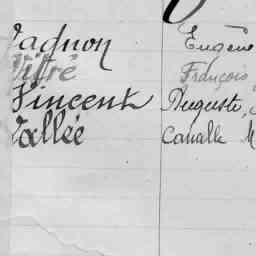 Vagnon Eugène
Vitré François
Vincent Auguste,
Vallée Canalle M